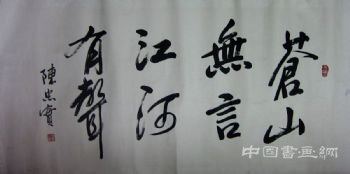 蒼山
無言
江河
有聲
陳忠實
中国书画网